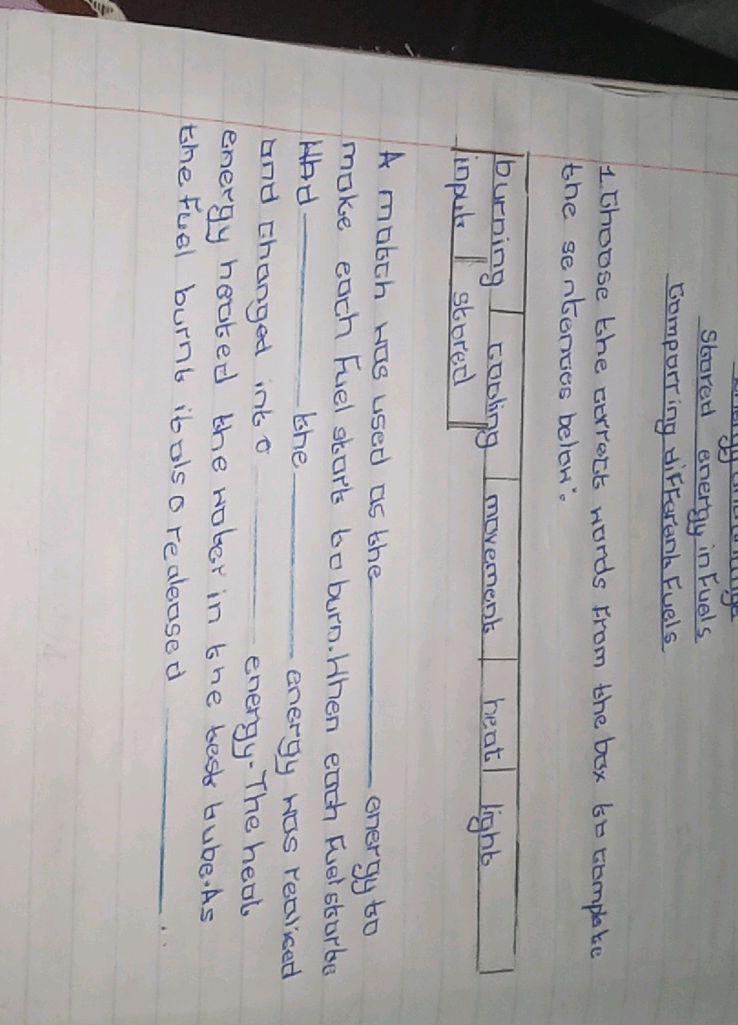 Stored energy in Fuels
Comparring differant Fuels
1. Choose the corrects words from the box to complete
the sentences below:
burning | cooling | movement | heat | light
input | stored
A match was used as the ______ energy to
make each Fuel start to burn. When each Fuel starte
Had ______ the ______ energy was realised
and changed into ______ energy. The heat
energy heated the water in the test tube. As
the fuel burnt it also realeased ______.